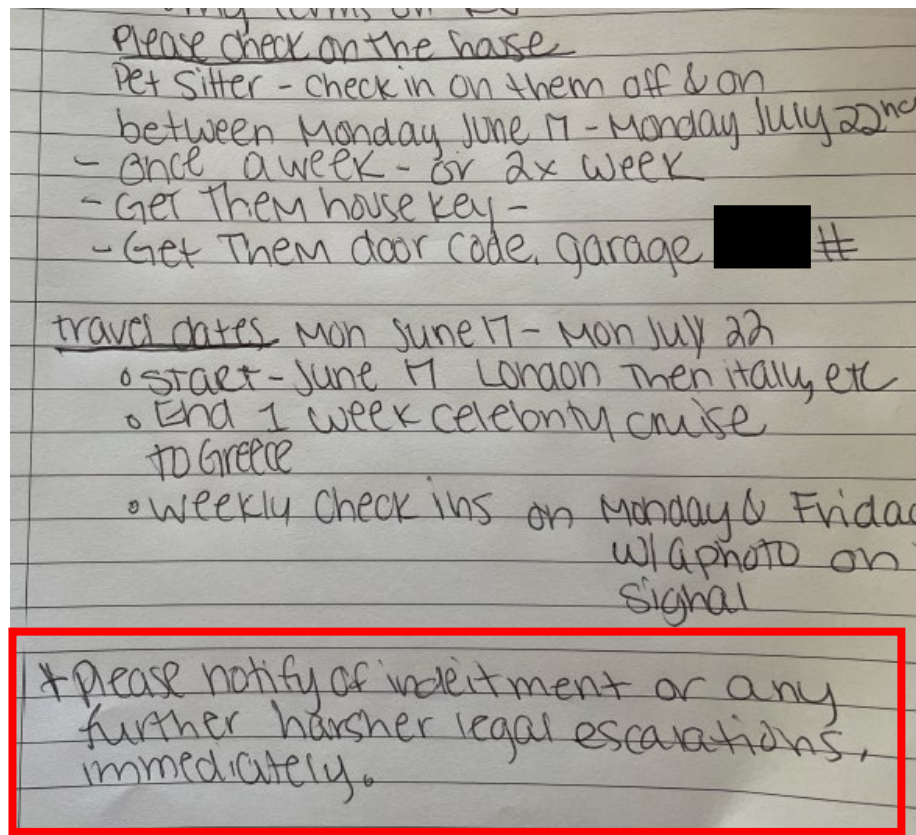 Please check on the house
Pet Sitter - check in on them off & on
between Monday June 17 - Monday July 22nd
- once a week - or 2x week
- Get Them house key -
- Get Them door code, garage #
travel dates Mon June 17 - Mon July 22
• START - June 17 London Then italy, etc
• End 1 week celebrity cruise
to Greece
• weekly check ins on Monday & Friday
w/ a photo on
signal
* please notify of indeitment or any
further harsher legal escalations,
immediately.